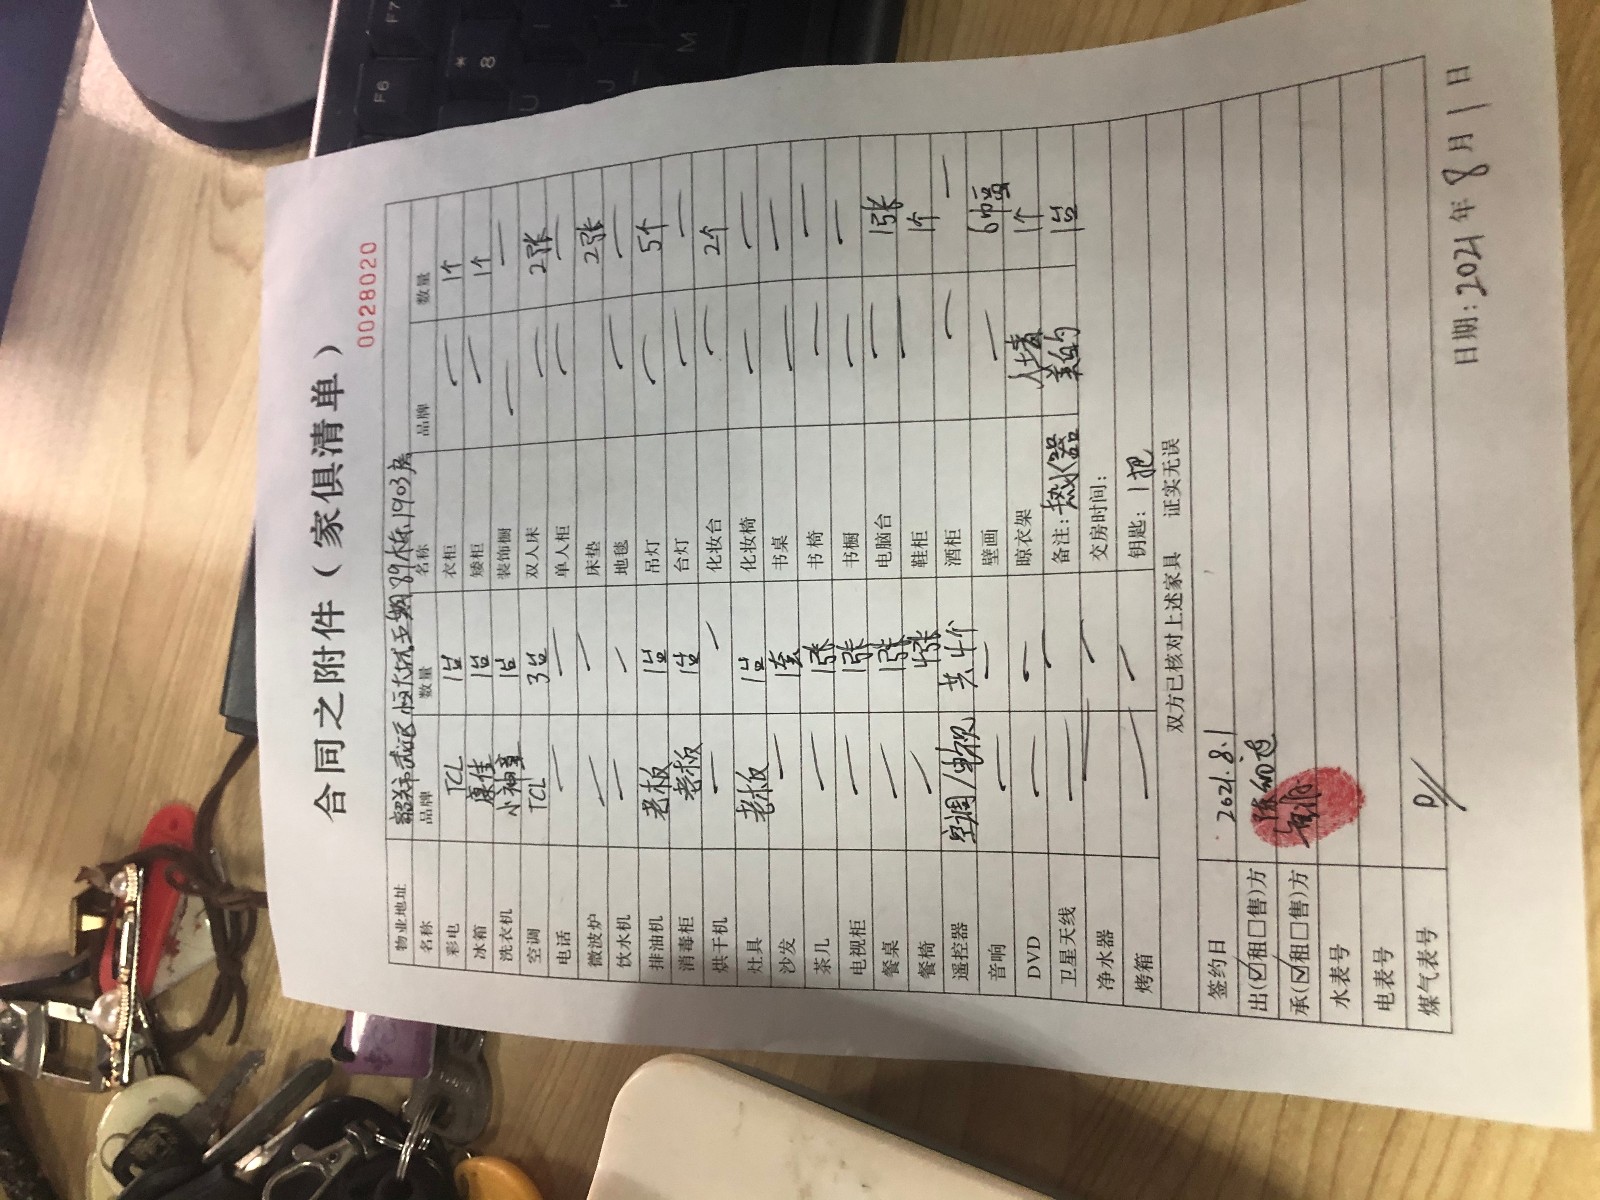 合同之附件（家俱清单）
0028020
物业地址 韶关市武江区恒大城三期39栋1903房
名称 品牌 数量 名称 品牌 数量
彩电 TCL 1台 衣柜 — 1个
冰箱 康佳 1台 矮柜 — 1个
洗衣机 小神童 1台 装饰橱 — —
空调 TCL 3台 双人床 — 2张
电话 — — 单人柜 — —
微波炉 — — 床垫 — 2张
饮水机 — — 地毯 — —
排油机 老板 1台 吊灯 — 5个
消毒柜 老板 1台 台灯 — —
烘干机 — — 化妆台 — 2个
灶具 老板 1台 化妆椅 — —
沙发 — 1套 书桌 — —
茶几 — 1张 书椅 — —
电视柜 — 1张 书橱 — —
餐桌 — 1张 电脑台 — 1张
餐椅 — 4张 鞋柜 — 1个
遥控器 空调/电视 共4个 酒柜 — —
音响 — — 壁画 — 6幅
DVD — — 晾衣架 1个
卫星天线 — — 备注：热水器 美的 1台
净水器 — — 交房时间：
烤箱 — — 钥匙：1把
双方已核对上述家具 证实无误
签约日 2021.8.1
出(☑租□售)方
承(☑租□售)方
水表号
电表号
煤气表号
日期：2021年8月1日
F7
F6
* 8
U
I
J
K
M